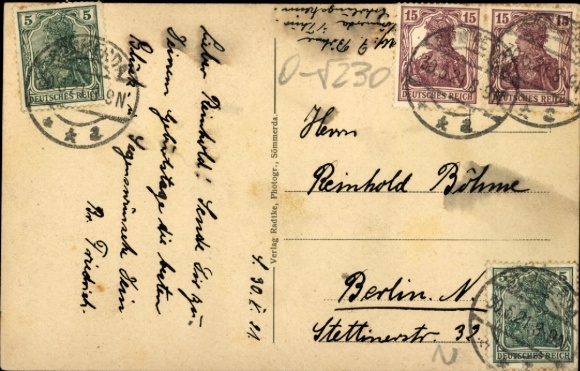 Lieber Reinhold! Sende Dir zu
Deinem Geburtstage die besten
Glück u. Segenswünsche Dein
Br. Friedrich.
S. 30. 5. 21
Verlag Radtke, Photogr., Sömmerda.
5
5
DEUTSCHES REICH
15
15
DEUTSCHES REICH
15
15
DEUTSCHES REICH
230
Herrn
Reinhold Böhme
Berlin. N.
Stettinerstr. 32
N
5
* a
* a
* a